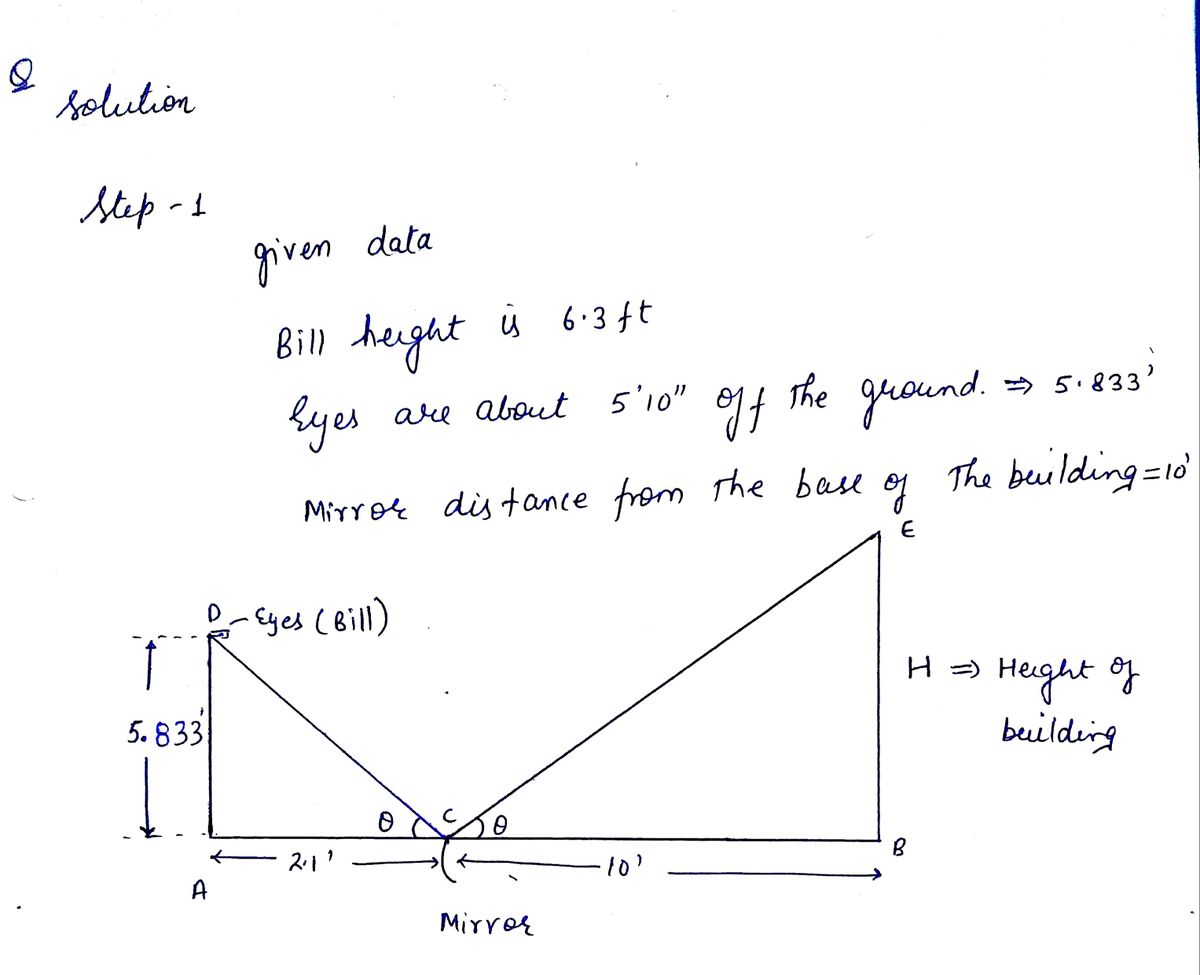 Q
Solution
Step-1
given data
Bill height is 6.3 ft
Eyes are about 5'10" off the ground. ⇒ 5.833'
Mirror distance from the base of The building=10'
E
D - Eyes (Bill)
H ⇒ Height of
building
5.833'
θ C θ
B
2.1' 10'
A
Mirror